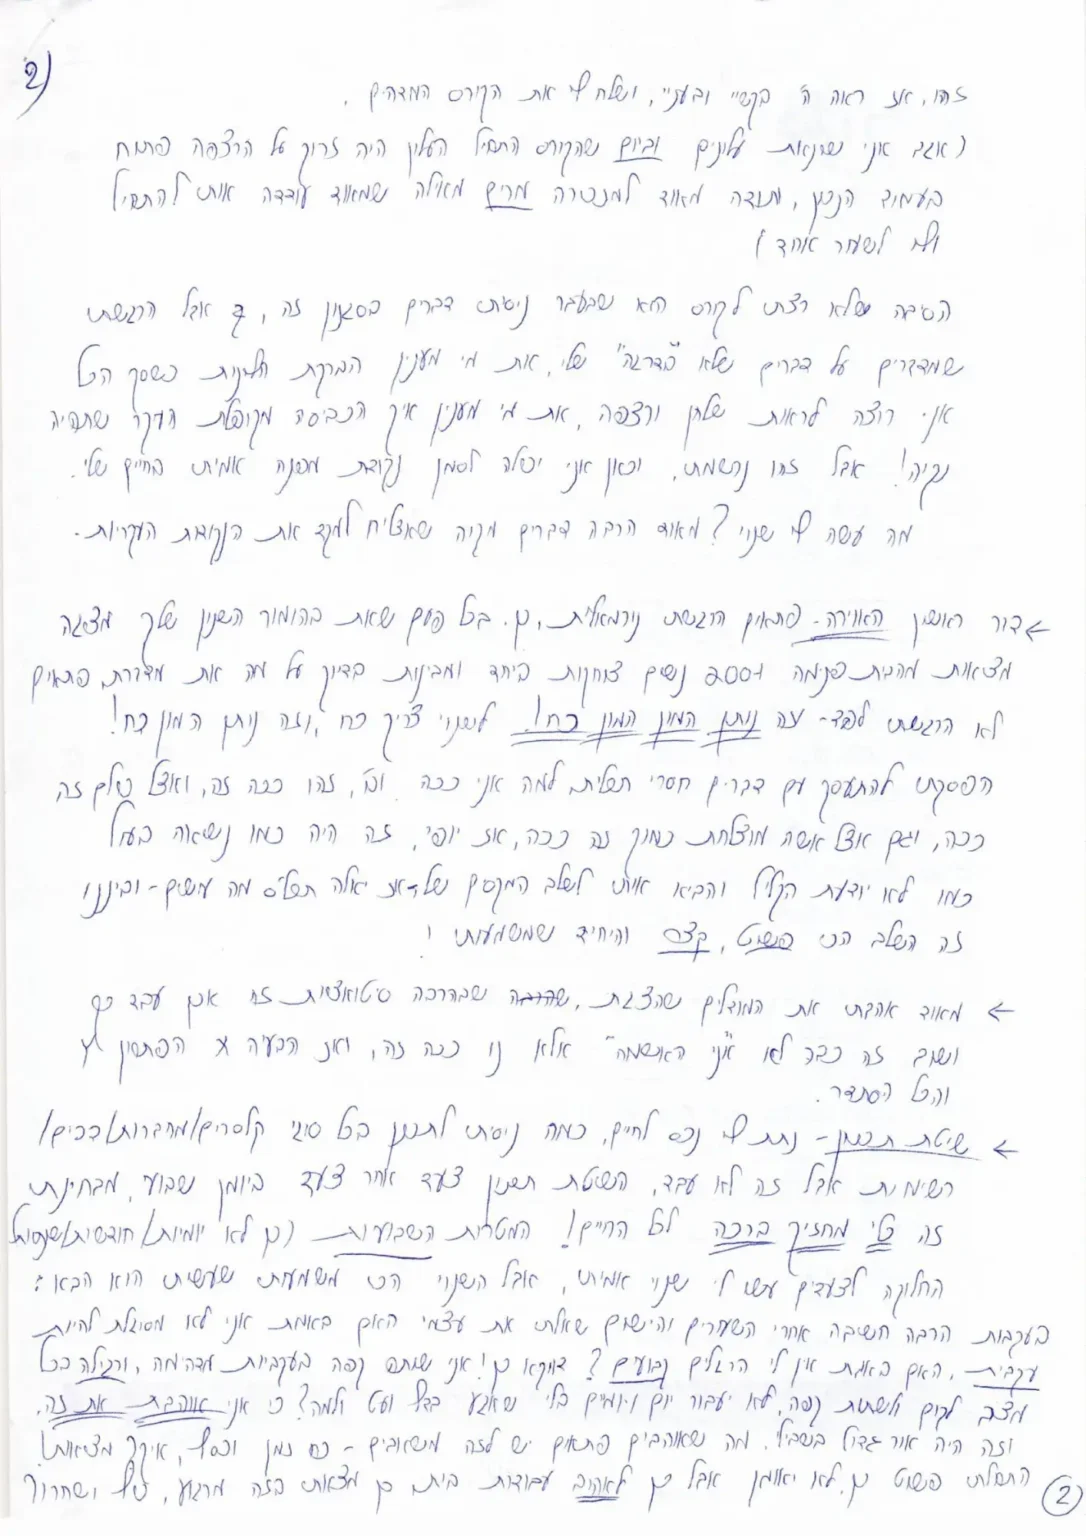 2)
זהו, אז ראה ה' בקשיי ובעניי, ושלח לי את הקורס המדהים.
(אגב אני שונאת עלונים וביום שהקורס התחיל העלון היה זרוק על הרצפה פתוח
בעמוד הנכון, תודה מאוד למזכירה מרים מאילה שמאוד עודדה אותי להתחיל
ולו לשעור אחד)
הסיבה שלא רצתי לקורס היא שבעבר ניסתי דברים בסגנון זה, אבל הרגשתי
שמדברים על דברים שלא "בדרגה" שלי, את מי מענין הברקת חלונות כשסך הכל
אני רוצה לראות שלחן ורצפה, את מי מענין איך הכביסה מקופלת העקר שתהיה
נקיה! אבל זהו נרשמתי, וכאן אני יכולה לסמן נקודת מפנה אמיתי בחיים שלי.
מה עשה לי שנוי? מאוד הרבה דברים מקוה שאצליח למקד את הנקודות העקריות.
→ דבר ראשון האווירה- פתאום הרגשתי נורמאלית, כן. בכל פעם שאת בהומור השנון שלך מציגה
מציאות מהבית פנימה ו-200 נשים צוחקות ביחד ומבינות בדיוק על מה את מדברת, פתאום
לא הרגשתי לבד- זה נותן המון המון כח! לשנוי צריך כח, וזה נותן המון כח!
הפסקתי להתעסק עם דברים חסרי תכלית, למה אני ככה וכו', זהו ככה זה, ואצל כולם זה
ככה, וגם אצל אשה מוצלחת כמוך זה ככה, אז יופי, זה היה כמו נשואה בעול
כמו לא יודעת הקליל והביא אותי לשלב המקסים של-אז יאלה תכל'ס מה עושים- ובינינו
זה השלב הכי פשוט, קצר והיחיד שמשמעותי!
→ מאוד אהבתי את המודלים שהצגת, שבהרבה סיטואציות זה אכן עבד כך
ושוב זה כבר לא "אני האשמה" אלא נו ככה זה, ואז הבעיה x הפתרון y
והכל הסתדר.
→ שיטת תכנון- נתת לי נכס לחיים, כמה ניסיתי לתכנן בכל סוגי קלסרים/מחברות/דפים/
רשימות אבל זה לא עבד, השיטת תכנון צעד אחר צעד ביומן שבועי, מבחינתי
זה כלי מחזיק ברכה לכל החיים! המטרות השבועיות (כן לא יומיות/חודשיות/שנתיות
החלוקה לצעדים עשו לי שנוי אמיתי, אבל השנוי הכי משמעותי שעשיתי הוא הבא:
בעקבות הרבה חשיבה אחרי השעורים והישום שאלתי את עצמי האם באמת אני לא מסוגלת להיות
עקבית, האם באמת אין לי הרגלים קבועים? דווקא כן! אני שותה קפה בעקביות מדהימה, ורגילה בכל
מצב לקום ולשתות קפה, לא יעבור יום ויומיים בלי שאגע בדלי ועט ולמה? כי אני אוהבת את זה,
וזה היה אור גדול בשבילי. מה שאוהבים פתאום יש לזה משאבים - כח זמן וכסף, איזה מציאות!
התחלתי פשוט כן, לא יאומן אבל כן לאהוב עבודות בית כן מצאתי בזה מרגוע, כיף ושחרור
2